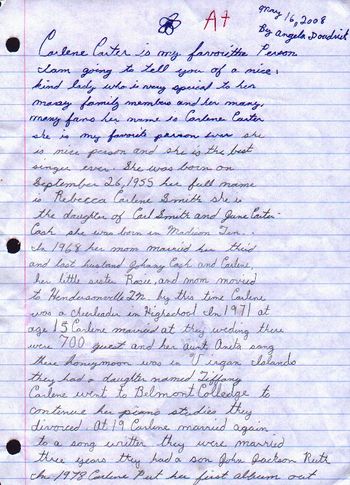 A+
May 16, 2008
By Angela Doudrick
Carlene Carter is my favoritte Person
I am going to tell you of a nice,
kind lady who is very special to her
many family members and her many,
many fans her name is Carlene Carter
she is my favorite person ever she
is nice person and she is the best
singer ever. She was born on
September 26, 1955 her full name
is Rebecca Carlene Smith she is
the daughter of Carl Smith and June Carter-
Cash she was born in Madison Ten.
In 1968 her mom married her third
and last husband Johnny Cash and Carlene,
her little sister Rosie, and mom movied
to Hendersonville TN. by this time Carlene
was a cheerleader in Highschool In 1971 at
age 15 Carlene married at they weding there
were 700 guest and her aunt Aneta song
there honeymoon was in Virgan Islands
they had a daughter named Tiffany
Carlene went to Belmont Colledge to
continue her piano studies they
divorced. At 19 Carlene married again
to a song writter they were married
three years they had a son John Jackson Ruth
In 1978 Carlene Put her first album out